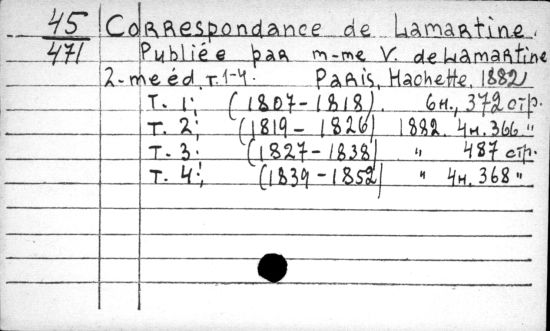 45 Correspondance de Lamartine.
471 Publiée par m-me V. de Lamartine
2-me éd. т. 1-4. Paris, Hachette, 1882
Т. 1; (1807-1818). 6н., 372 стр.
Т. 2; (1819-1826) 1882. 4н. 366 "
Т. 3; (1827-1838) " 487 стр.
Т. 4; (1839-1852) " 4н. 368 "